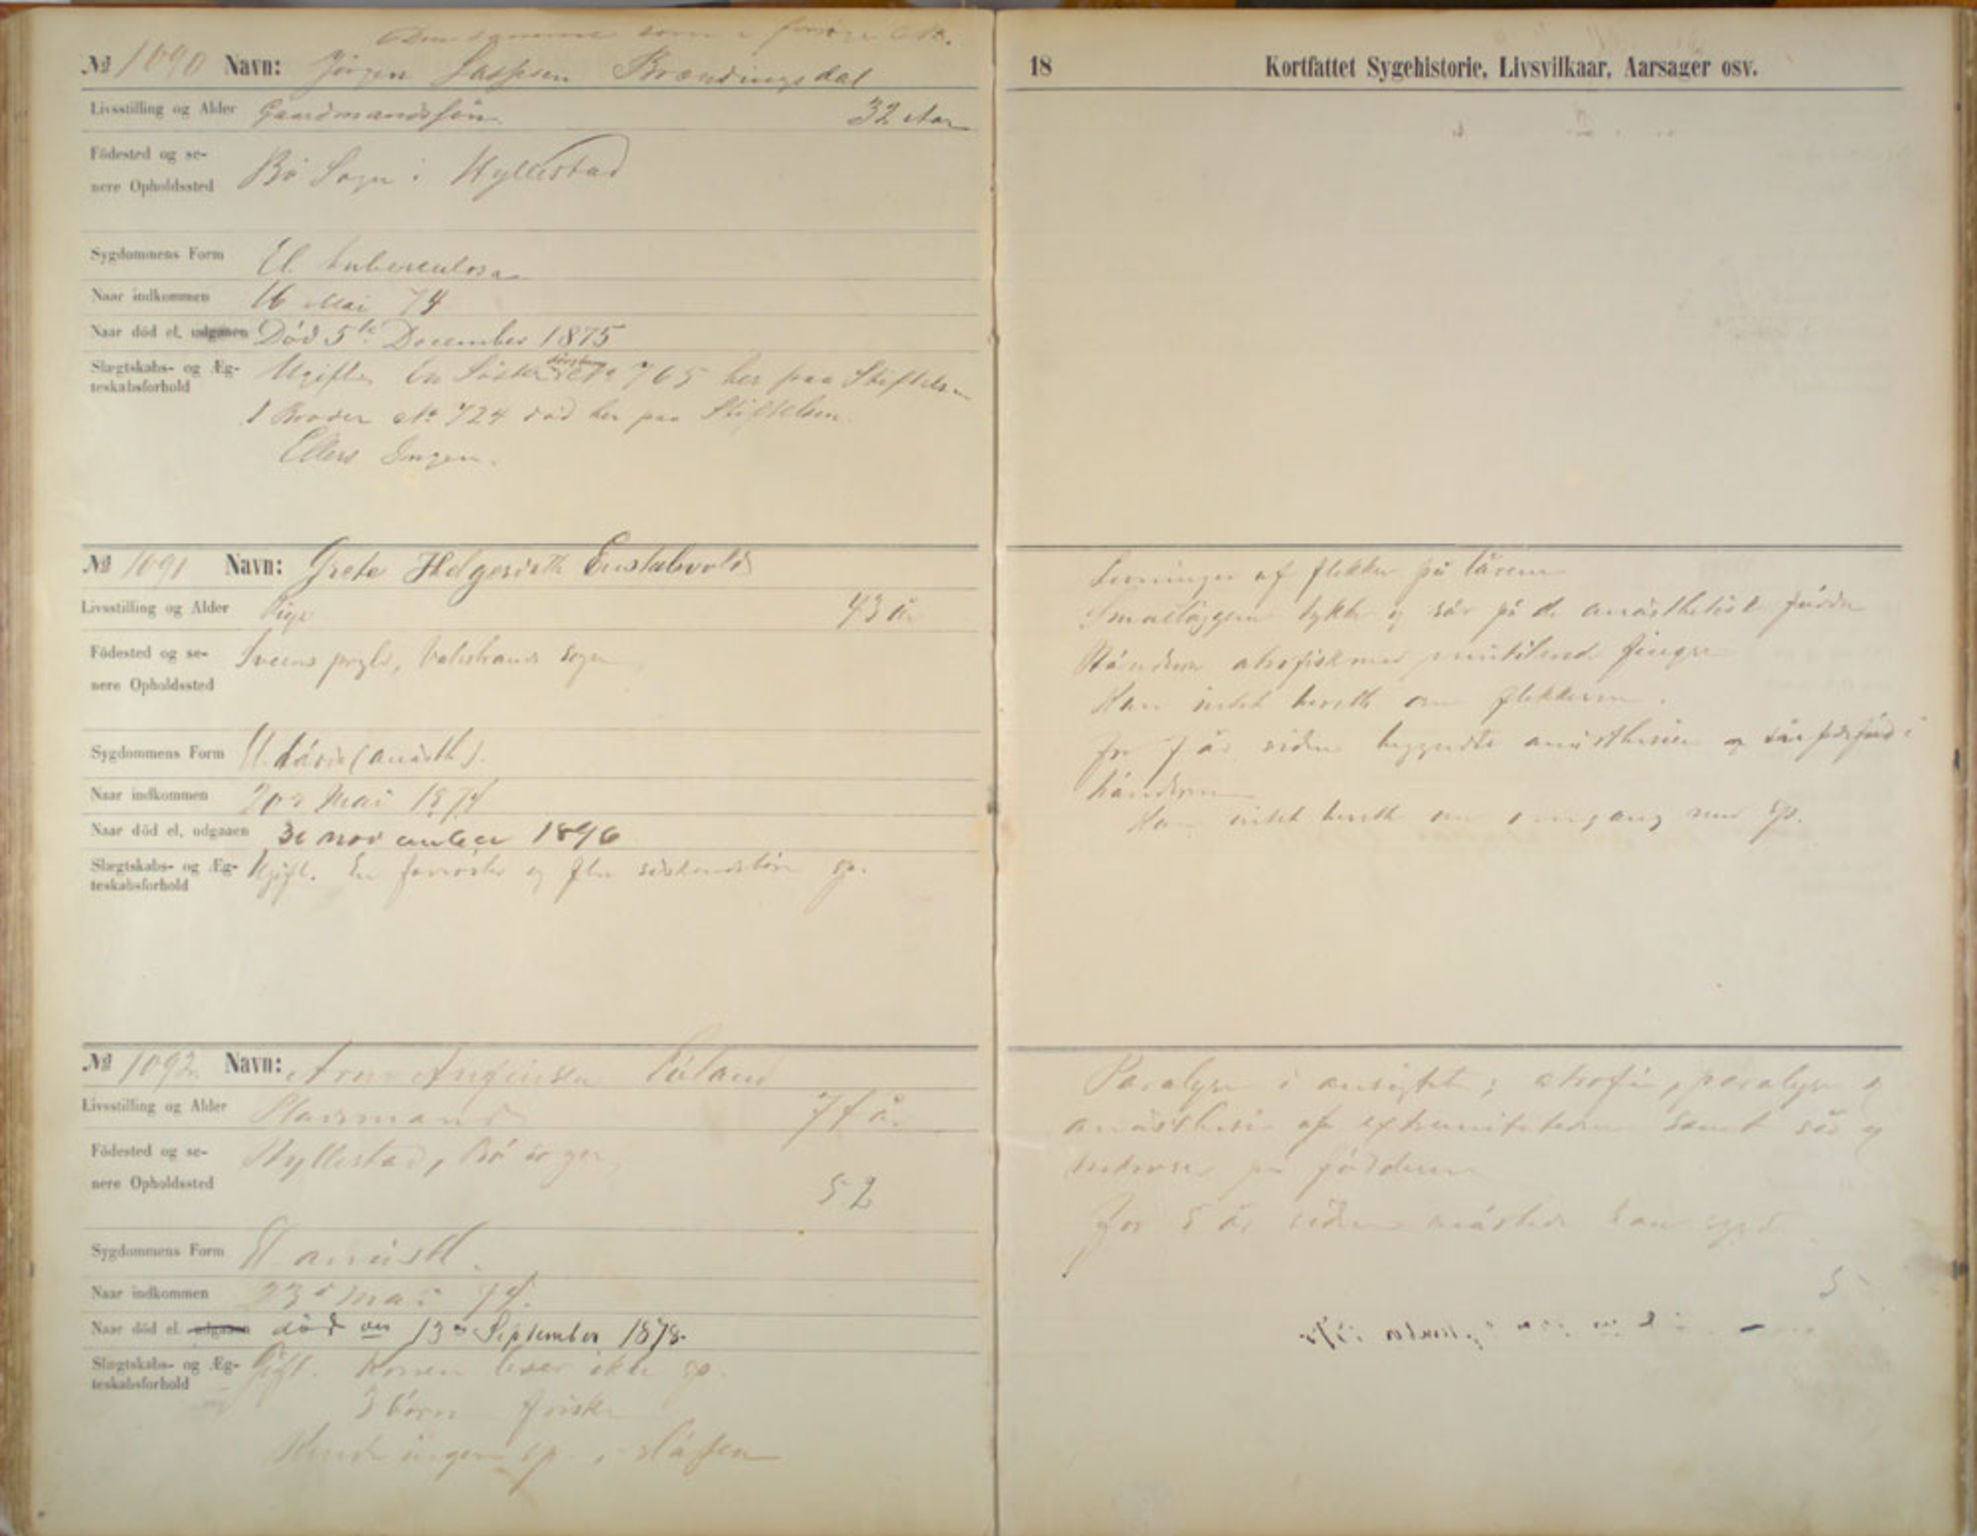 Den samme som i forrige No.
№ 1090 Navn: Jörgen Brændingsdal
Livsstilling og Alder Gaardmandssön. 32 Aar
Födested og se-
nere Opholdssted Bö Sogn i Hyllestad
Sygdommens Form El. tuberculosa
Naar indkommen 16 Mai 74
Naar död el. udgaaen Död 5te December 1875
Slægtskabs- og Æg-
teskabsforhold Ugift. En Söster No 765 her paa Stiftelsen
1 Broder No 724 död her paa Stiftelsen.
Ellers Ingen.
№ 1091 Navn: Grete Helgesdtt
Livsstilling og Alder Pige 43 år
Födested og se-
nere Opholdssted sogn
Sygdommens Form El. (anästh).
Naar indkommen 20de Mai 1874
Naar död el. udgaaen 30 november 1896
Slægtskabs- og Æg-
teskabsforhold Ugift. En og flere sp.
№ 1092 Navn: Arne
Livsstilling og Alder Pladsmand 74 år.
Födested og se-
nere Opholdssted Hyllestad, Bö sogn
52
Sygdommens Form El. anästh.
Naar indkommen 23de mai 74.
Naar död el. udgaaen död den 13de September 1878.
Slægtskabs- og Æg-
teskabsforhold Gift. Konen lever ikke sp.
3 börn friske
ingen sp. i slägten
18 Kortfattet Sygehistorie, Livsvilkaar, Aarsager osv.
Levninger af flekker på lårene
Smallæggene tykke og sår på de anästhetiske födder
Händerne atrofiske med mutilerede fingre
Kan intet berette om flekkerne.
For 7 år siden begyndte anästhesien og i
händerne
Kan intet berette om omgang med sp.
Paralyse i ansigtet; atrofi, paralyse og
anästhesi af extremiteterne samt sår og
nekrose på födderne
For 5 år siden mästede han
5